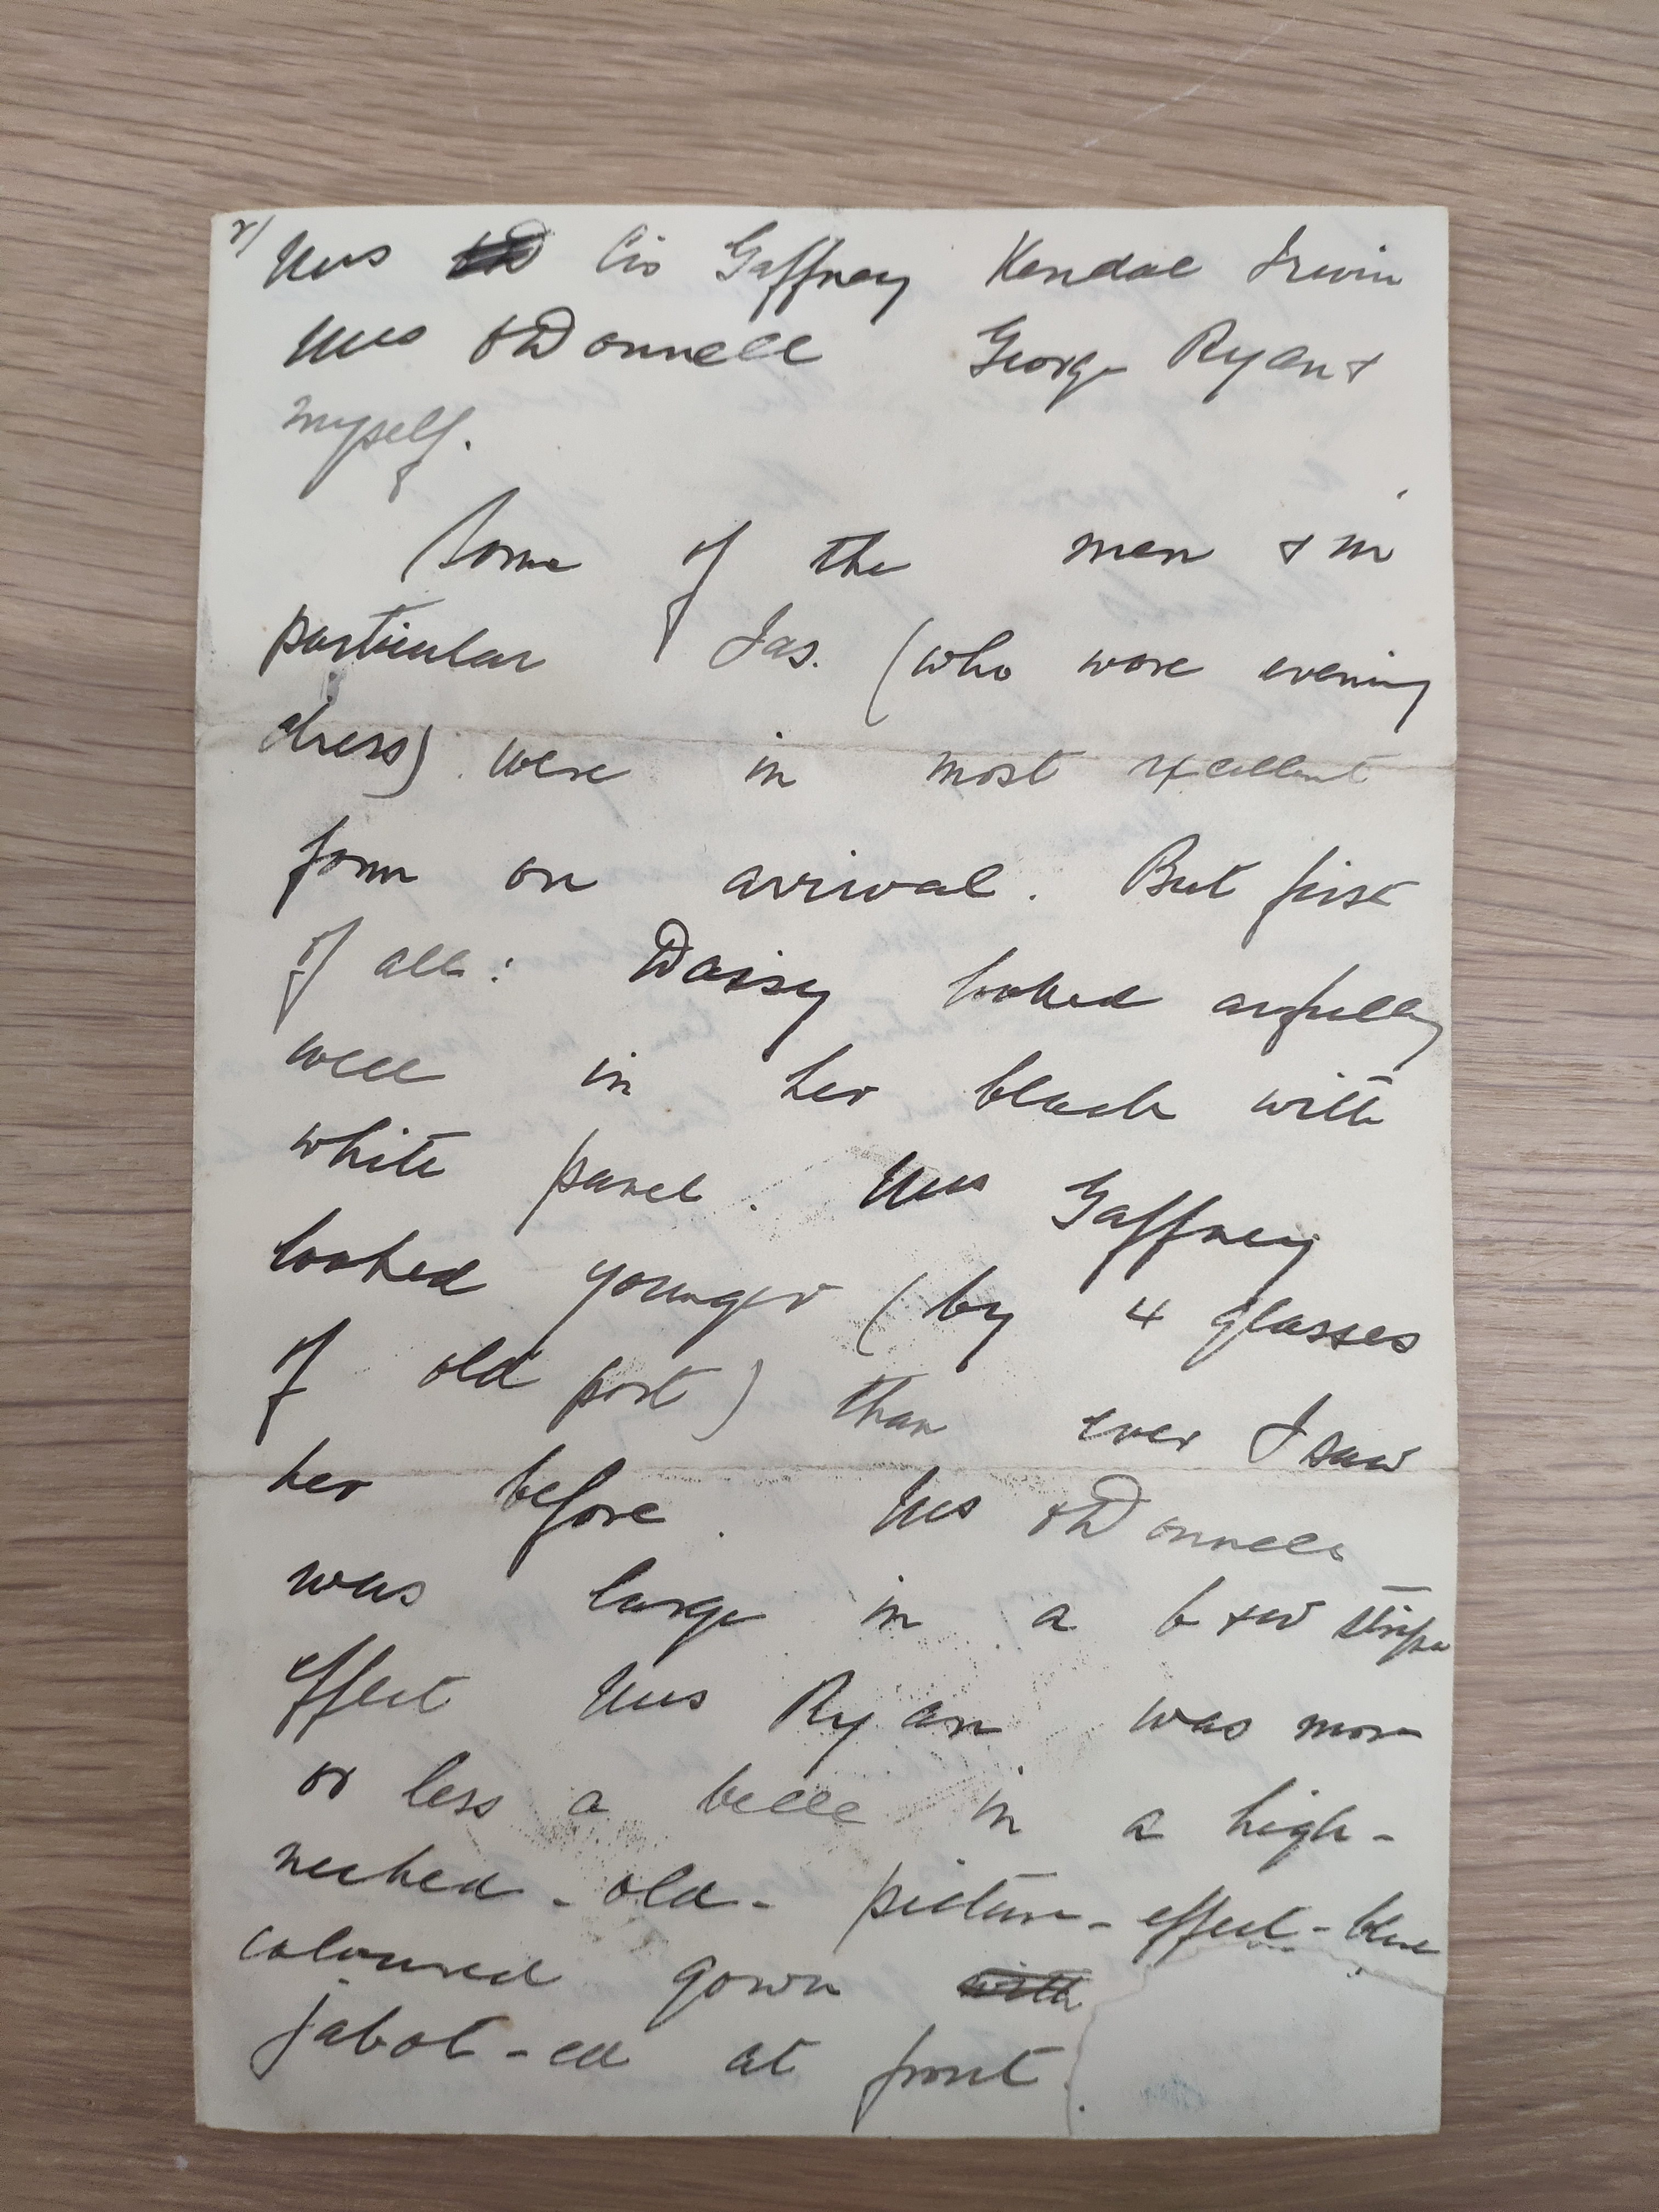 Mrs Cis Gaffney Kendal Irwin
Mrs O'Donnell George Ryan &
myself.
Some of the men & in
particular Jas. (who wore evening
dress) were in most excellent
form on arrival. But first
of all: Daisy looked awfully
well in her black with
white panel. Mrs Gaffney
looked younger (by 4 glasses
of old port) than ever I saw
her before. Mrs O'Donnell
was large in a b & w stripe
effect Mrs Ryan was more
or less a belle in a high-
necked - old - picture - effect - blue
coloured gown with
jabot-ed at front.